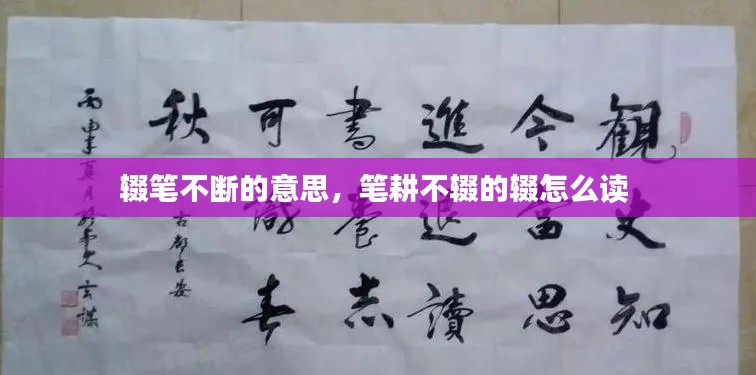 辍笔不断的意思，笔耕不辍的辍怎么读
觀史知
今當思
進退讀
書養志
可識春
秋
古都长安
丙申年夏月